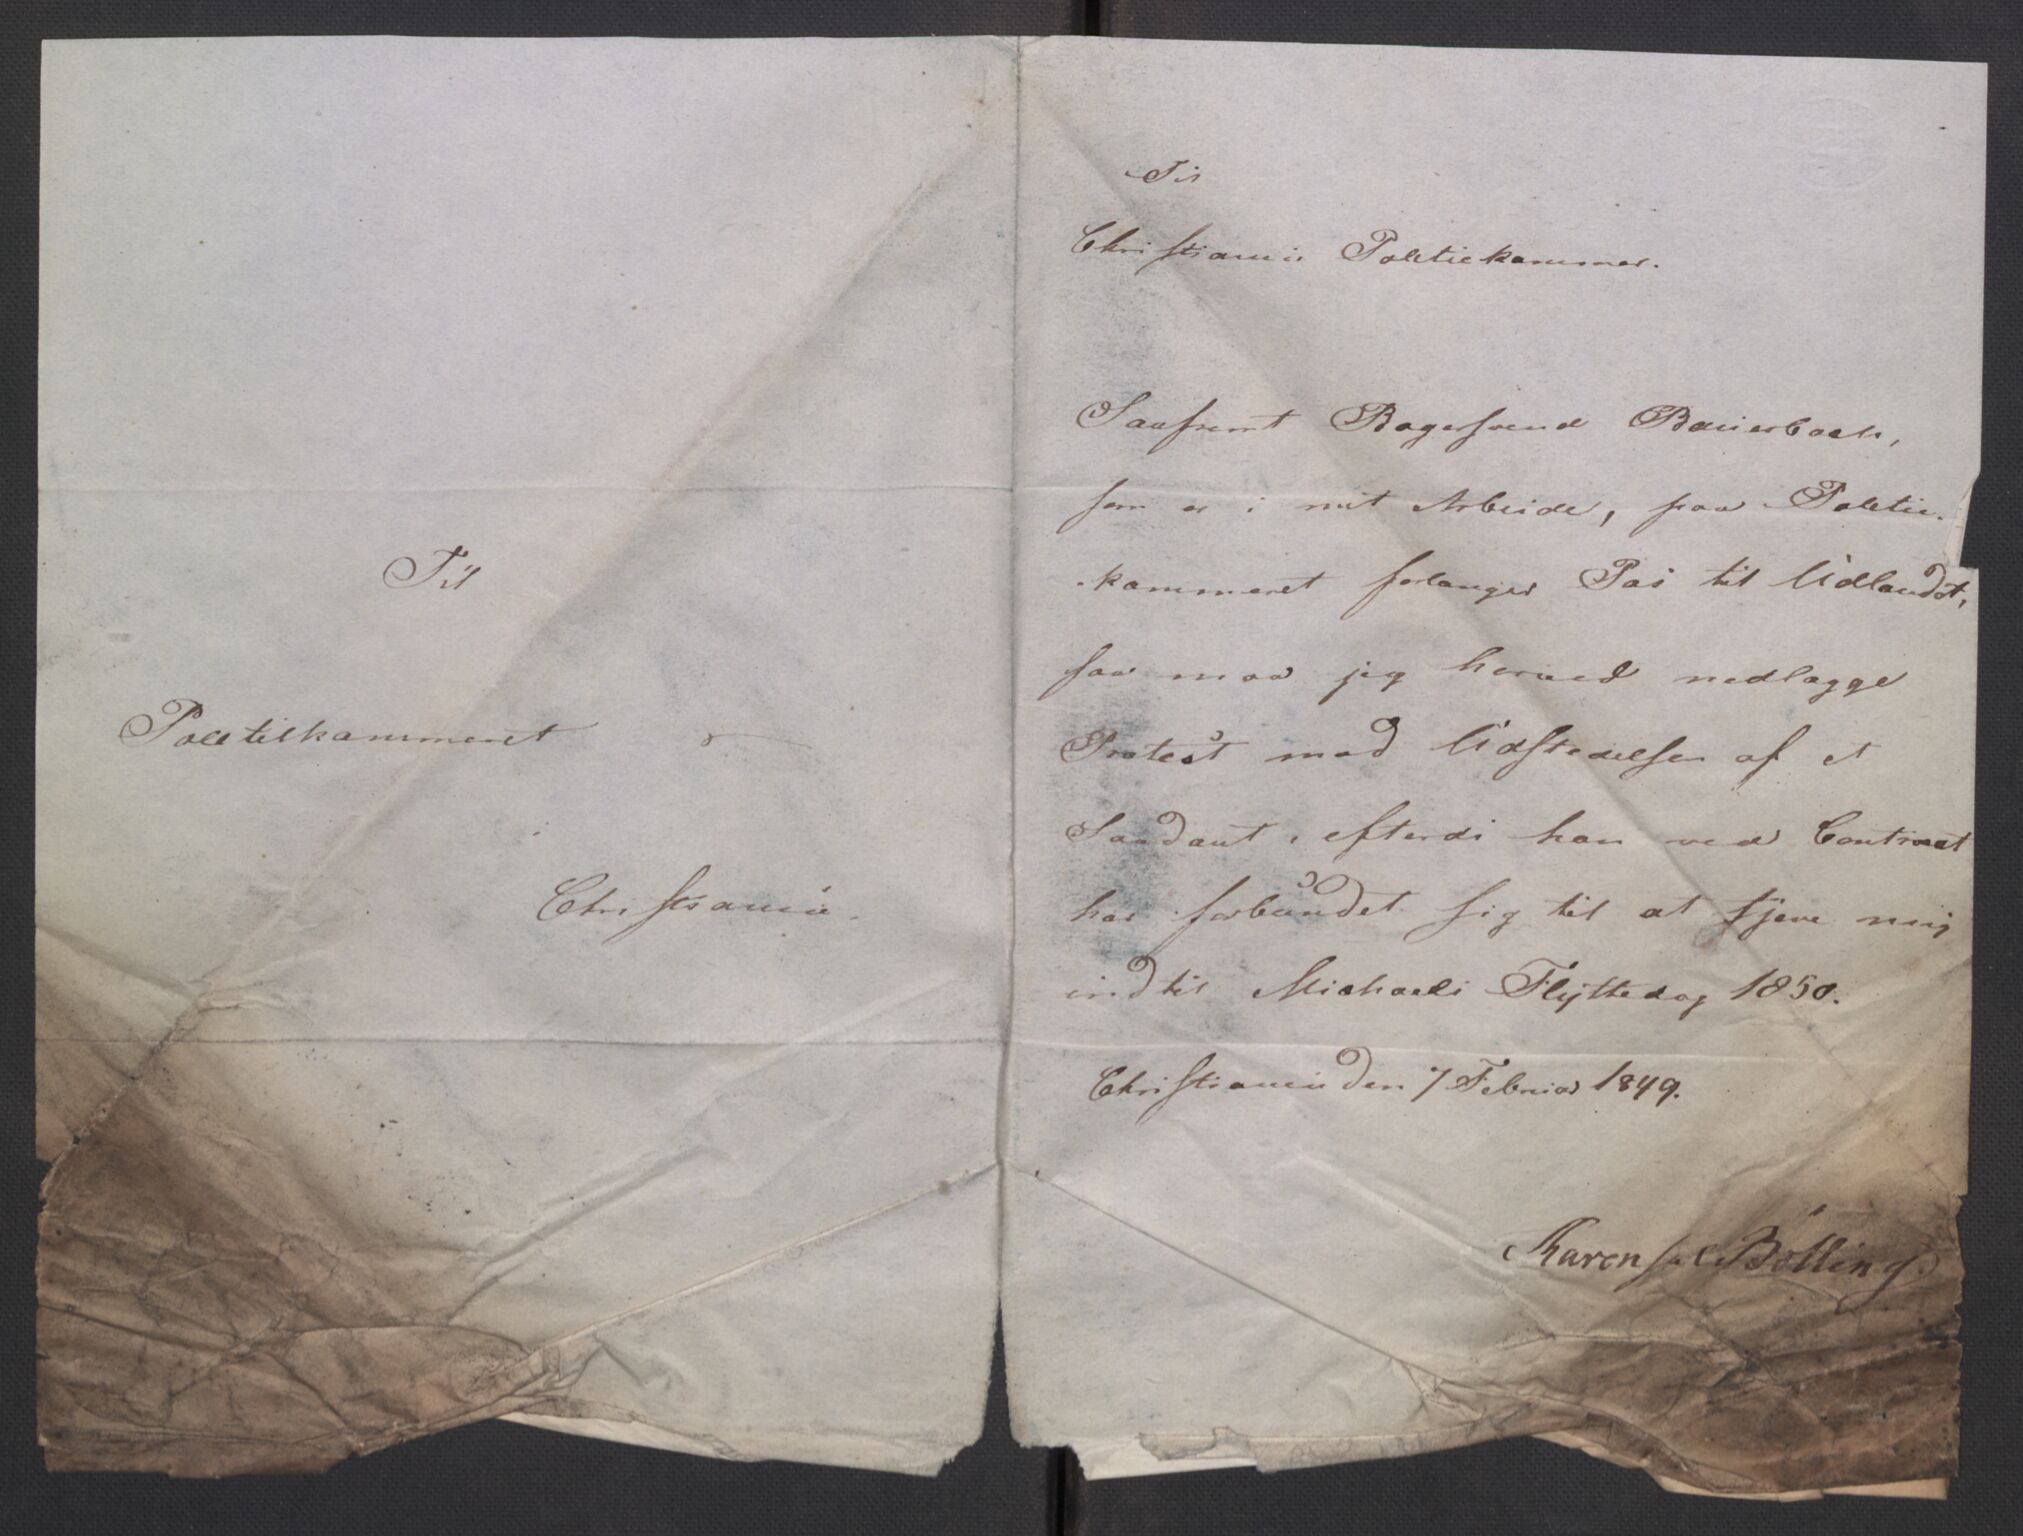 Til
Politikammeret
Christiania.
Til
Christiania Politiekammer.
Saafremt Bagersvend Baierbach,
som er i mit Arbeide, paa Politie-
kammeret forlanger Pas til Udlandet,
saa maa jeg herved nedlægge
Protest mod Udstedelsen af et
Saadant, efterdi han ved Contract
har forbundet sig til at tjene mig
indtil Michaeli Flyttedag 1850.
Christiania den 7 Februar 1849.
Karen sal. Bölling.